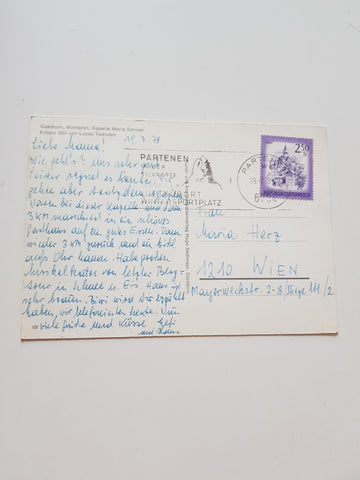 Gaschurn, Montafon, Kapelle Maria Schnee
Erbaut 1637 von Lucas Tschofen
19.7.78
Liebe Mama!
Wie geht's? Uns sehr gut.
Leider regnet es heute,
gehen aber trotzdem
Waren bei dieser Kapelle und dann
3 km marschiert in ein schönes
Gasthaus auf ein gutes Essen. Dann
wieder 3 km zurück und ein bißl
aufs Ohr hauen. Habe großen
Muskelkater von letzter Berg-
tour in Schnee u. Eis. Hans ist
sehr braun. wird Dir erzählt
haben, wir telefonierten heute. Nun
viele Grüße und Küsse
und
PARTENEN
SILVRETTA
LUFTKURORT
WINTERSPORTPLATZ
PARTENEN
2.50
REPUBLIK ÖSTERREICH
Frau
Maria Herz
1210 WIEN
Mayerweckstr. 2-8, Stiege 11/2